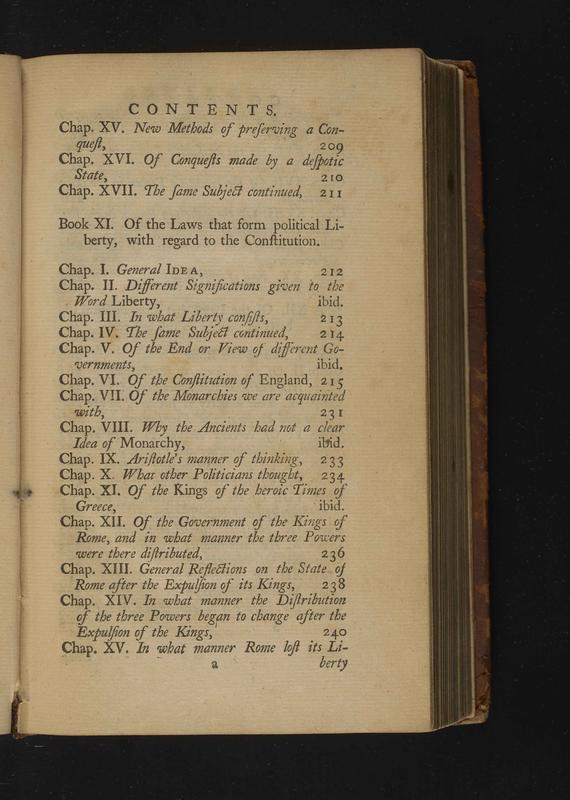 CONTENTS.
Chap. XV. New Methods of preſerving a Con-
queſt, 209
Chap. XVI. Of Conqueſts made by a deſpotic
State, 210
Chap. XVII. The ſame Subject continued, 211
Book XI. Of the Laws that form political Li-
berty, with regard to the Conſtitution.
Chap. I. General IDEA, 212
Chap. II. Different Significations given to the
Word Liberty, ibid.
Chap. III. In what Liberty conſiſts, 213
Chap. IV. The ſame Subject continued, 214
Chap. V. Of the End or View of different Go-
vernments, ibid.
Chap. VI. Of the Conſtitution of England, 215
Chap. VII. Of the Monarchies we are acquainted
with, 231
Chap. VIII. Why the Ancients had not a clear
Idea of Monarchy, ibid.
Chap. IX. Ariſtotle's manner of thinking, 233
Chap. X. What other Politicians thought, 234
Chap. XI. Of the Kings of the heroic Times of
Greece, ibid.
Chap. XII. Of the Government of the Kings of
Rome, and in what manner the three Powers
were there diſtributed, 236
Chap. XIII. General Reflections on the State of
Rome after the Expulſion of its Kings, 238
Chap. XIV. In what manner the Diſtribution
of the three Powers began to change after the
Expulſion of the Kings, 240
Chap. XV. In what manner Rome loſt its Li-
a berty